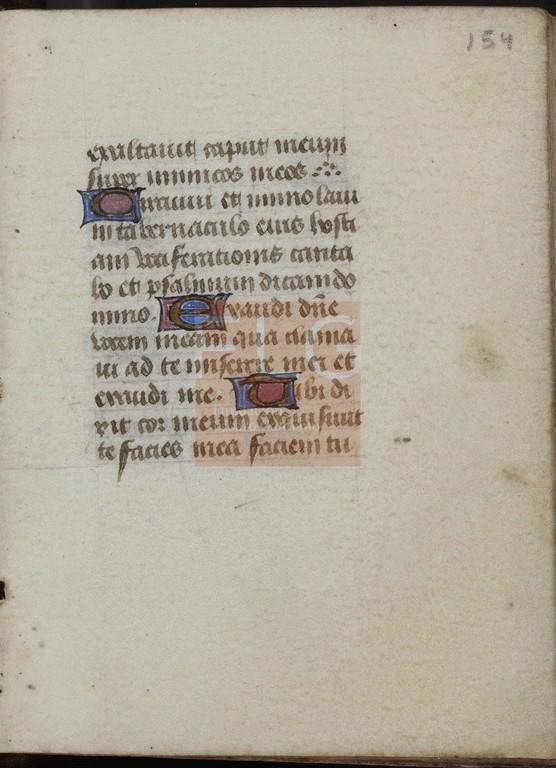 154
exaltavit caput meum
super inimicos meos
Circuivi et immolavi
in tabernaculo eius hosti
am vociferationis canta
bo et psalmum dicam do
mino. Exaudi dñe
vocem meam qua clama
vi ad te miserere mei et
exaudi me. Tibi di
xit cor meum exquisivit
te facies mea faciem tu